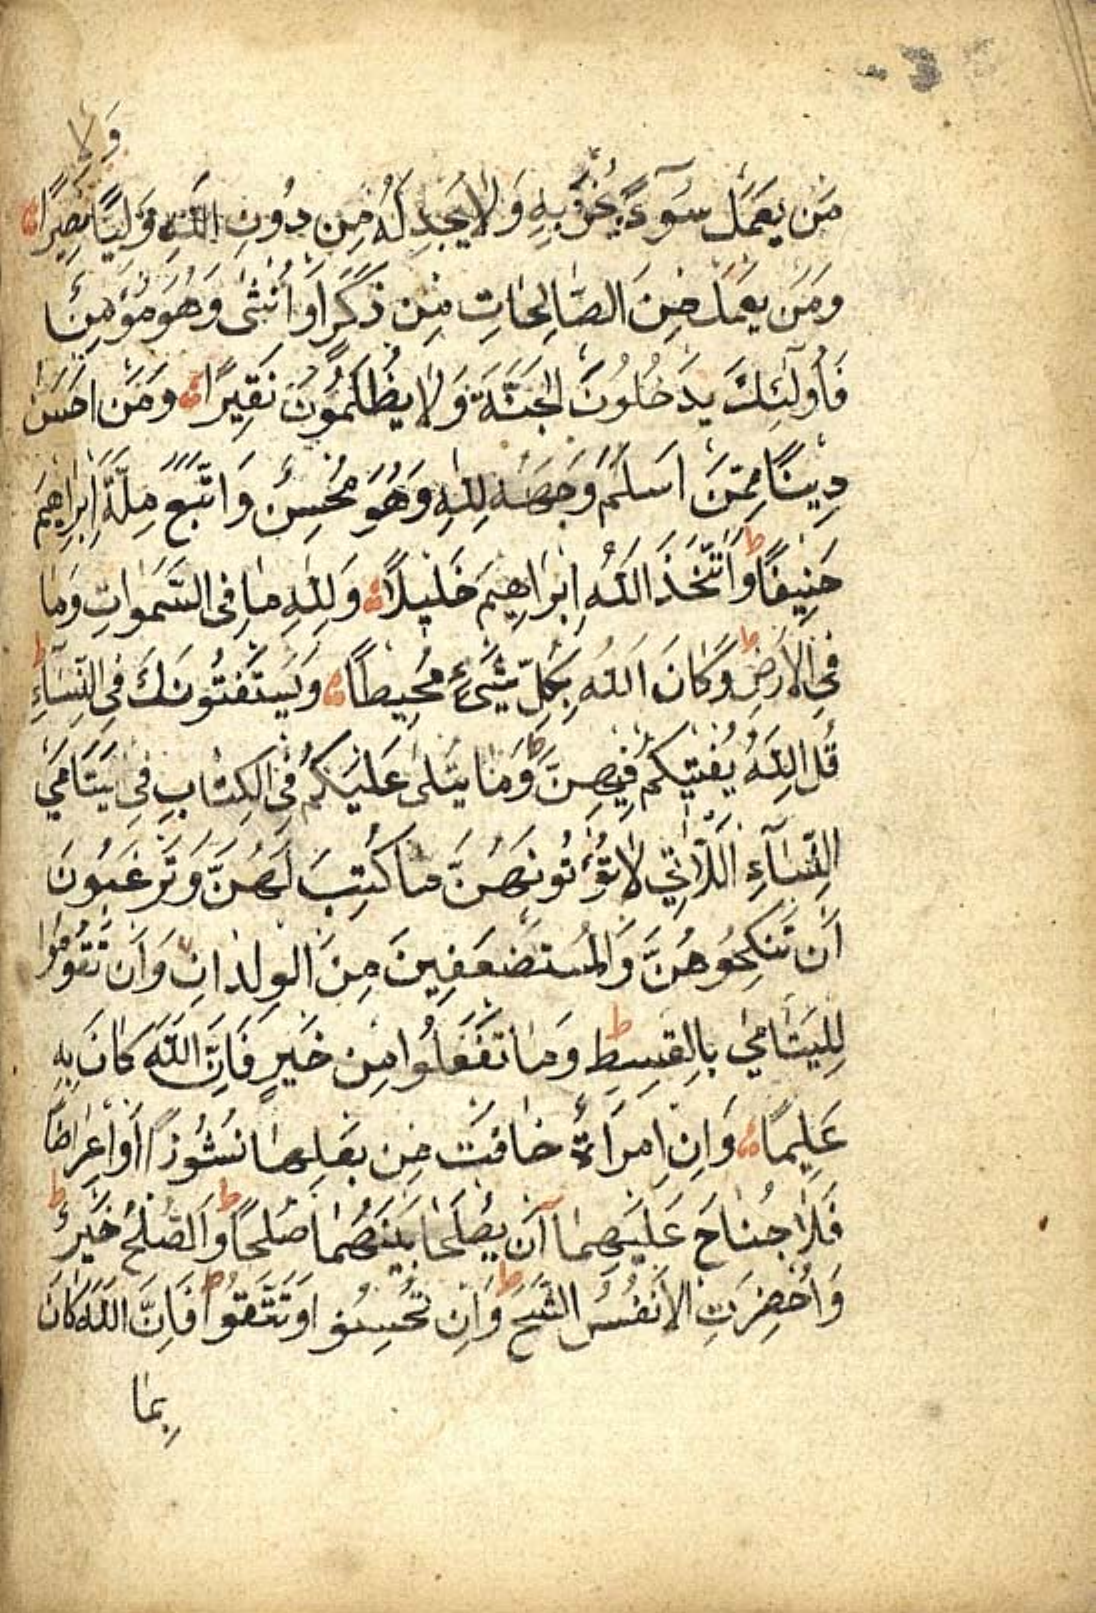 وَلا
مَن يَعْمَل سُوٓءًا يُجْزَ بِهِ وَلا يَجِدْ لَهُ مِن دُونِ اللّٰهِ وَلِيًّا نَصِيرًا
وَمَن يَعْمَلْ مِنَ الصَّالِحَاتِ مِن ذَكَرٍ اَوْ اُنْثٰى وَهُوَ مُؤْمِنٌ
فَاُولٰٓئِكَ يَدْخُلُونَ الجَنَّةَ وَلا يُظْلَمُونَ نَقِيرًا وَمَن اَحْسَنُ
دِينًا مِمَّنْ اَسْلَمَ وَجْهَهُ لِلّٰهِ وَهُوَ مُحْسِنٌ وَاتَّبَعَ مِلَّةَ اِبْرَاهِيمَ
حَنِيفًا ط وَاتَّخَذَ اللّٰهُ اِبْرَاهِيمَ خَلِيلًا وَلِلّٰهِ مَا فِى السَّمٰوَاتِ وَمَا
فِى الاَرْضِ ط وَكَانَ اللّٰهُ بِكُلِّ شَىْءٍ مُحِيطًا وَيَسْتَفْتُونَكَ فِى النِّسَآءِ ط
قُلِ اللّٰهُ يُفْتِيكُمْ فِيهِنَّ وَمَا يُتْلٰى عَلَيْكُمْ فِى الكِتَابِ فِى يَتَامَى
النِّسَآءِ اللَّاتِى لا تُؤْتُونَهُنَّ مَا كُتِبَ لَهُنَّ وَتَرْغَبُونَ
اَن تَنْكِحُوهُنَّ وَالمُسْتَضْعَفِينَ مِنَ الوِلْدَانِ وَاَن تَقُومُوا
لِليَتَامٰى بِالقِسْطِ ط وَمَا تَفْعَلُوا مِن خَيْرٍ فَاِنَّ اللّٰهَ كَانَ بِهِ
عَلِيمًا وَاِنِ امْرَاَةٌ خَافَتْ مِن بَعْلِهَا نُشُوزًا اَوْ اِعْرَاضًا
فَلا جُنَاحَ عَلَيْهِمَآ اَن يُصْلِحَا بَيْنَهُمَا صُلْحًا ط وَالصُّلْحُ خَيْرٌ ط
وَاُحْضِرَتِ الاَنْفُسُ الشُّحَّ ط وَاِن تُحْسِنُوا وَتَتَّقُوا فَاِنَّ اللّٰهَ كَانَ
بِمَا